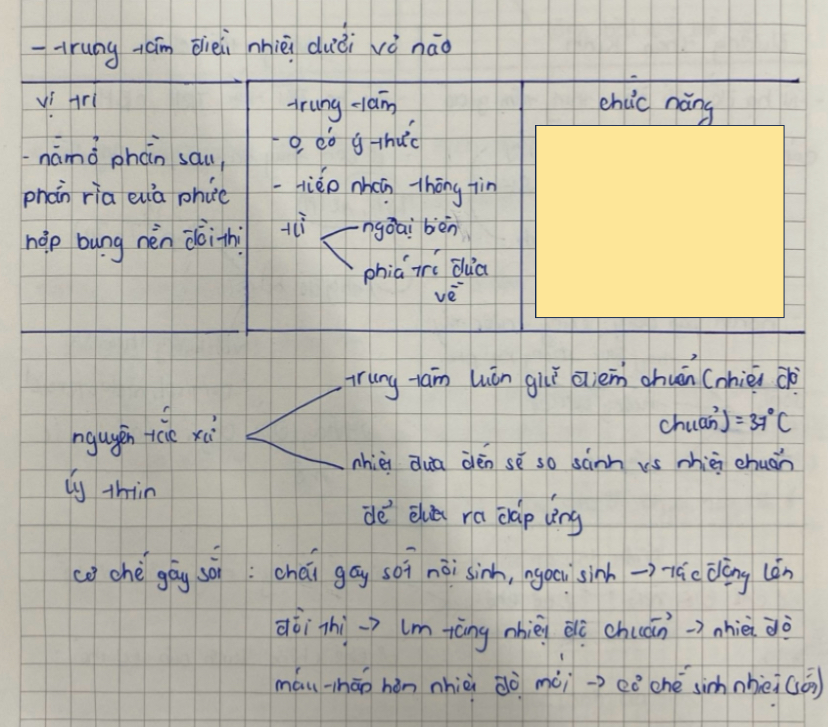 - trung tâm điều nhiệt dưới vỏ não
vị trí
- nằm ở phần sau,
phần rìa của phức
hợp bụng nền đồi thị
trung tâm
- 0 có ý thức
- tiếp nhận thông tin
từ
ngoại biên
phía trí đưa
về
chức năng
trung tâm luôn giữ điểm chuẩn (nhiệt độ
chuẩn) = 37°C
nguyên tắc xử
lý thtin
nhiệt đưa đến sẽ so sánh vs nhiệt chuẩn
để đưa ra đáp ứng
cơ chế gây sốt : chất gây sốt nội sinh, ngoại sinh → tác động lên
đồi thị → lm tăng nhiệt độ chuẩn → nhiệt độ
máu thấp hơn nhiệt độ mới → cơ chế sinh nhiệt (sốt)